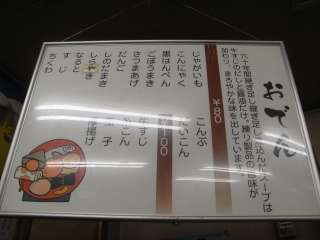 おでん
六十年間継ぎ足し継ぎ足し、仕込んだスープは
牛すじのだしと醤油だけ。練り製品の旨味が
加わり、まろやかな味を出しています。
¥80
じゃがいも
こんにゃく
黒はんぺん
ごぼうまき
さつまあげ
だんご
しのだまき
しらやき
なると
すじ
ちくわ
こんぶ
だいこん
¥100
牛すじ
厚揚げ